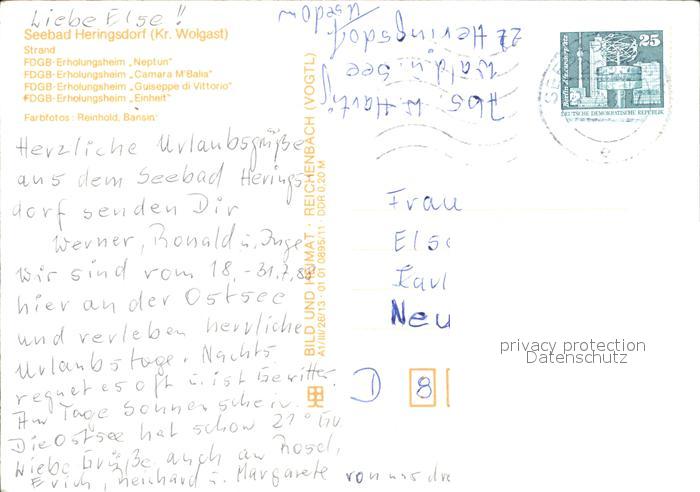 Liebe Else!!
Seebad Heringsdorf (Kr. Wolgast)
Strand
FDGB-Erholungsheim „Neptun"
FDGB-Erholungsheim „Camara M'Balia"
FDGB-Erholungsheim „Guiseppe di Vittorio"
FDGB-Erholungsheim „Einheit"
Farbfotos: Reinhold, Bansin
Herzliche Urlaubsgrüße
aus dem Seebad Herings-
dorf senden Dir
Werner, Ronald u. Inge
Wir sind vom 18.-31.7.
hier an der Ostsee
und verleben herrliche
Urlaubstage. Nachts
regnet es oft u. ist Gewitter.
Am Tage Sonnenschein.
Die Ostsee hat schon 21°
Liebe Grüße auch an
Erich, Reinhard u. Margarete von uns
BILD UND HEIMAT · REICHENBACH (VOGTL)
A1/III/26/13 01 01 0895/11 DDR 0,20 M
Abs. W. Hartj
Wald u. See
22 Heringsdorf
Usedom
25
Berlin, Alexanderplatz
DEUTSCHE DEMOKRATISCHE REPUBLIK
SEE
e
Frau
Els
Karl
Neu
D 8
privacy protection
Datenschutz